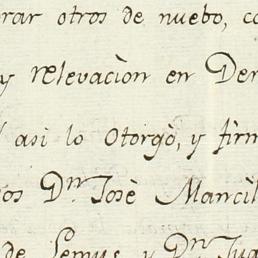 rar otros de nuebo, co
y relevaciòn en Der
asi lo otorgò, y firm
os Dⁿ Josè Mancil
de Lemus, y Dⁿ Jua